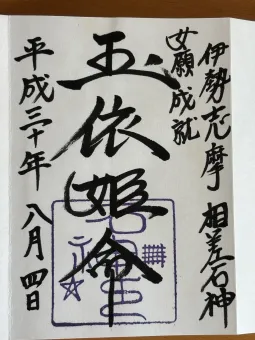 伊勢志摩 相差石神
女願成就
玉依姫命
平成三十年 八月四日
石神